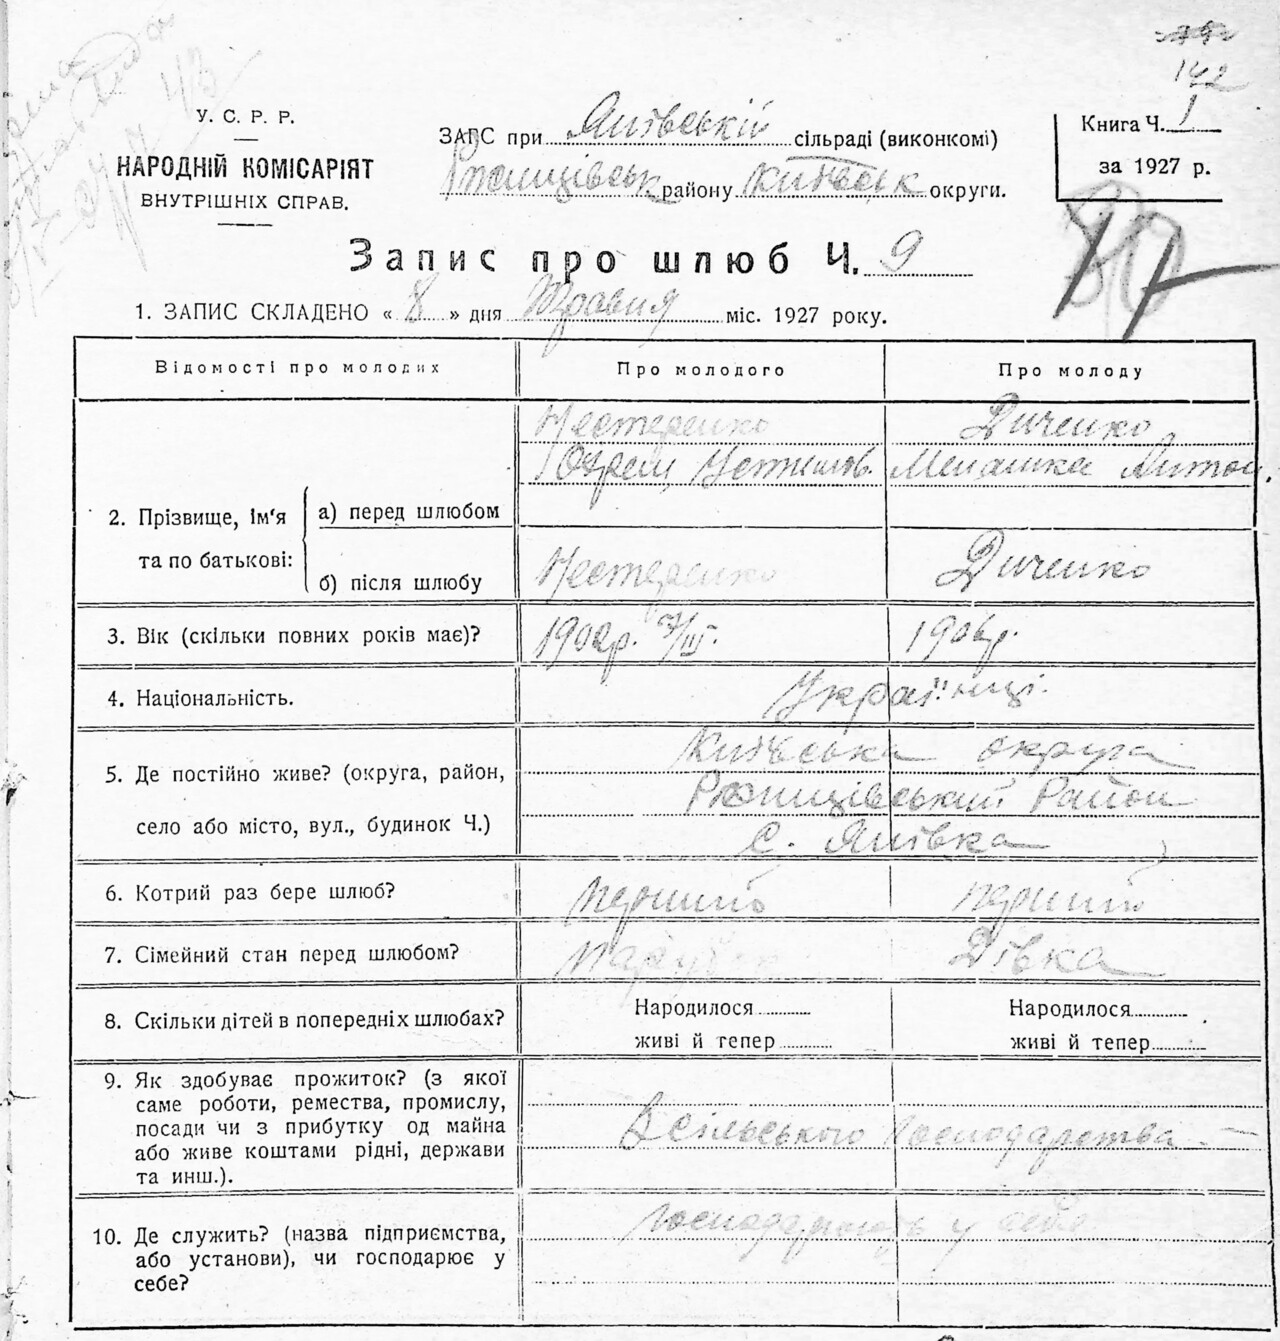 142
У. С. Р. Р.
НАРОДНІЙ КОМІСАРІЯТ
ВНУТРІШНІХ СПРАВ.
ЗАГС при Янівській сільраді (виконкомі)
Ржищівськ району Київськ округи.
Книга Ч. 1
за 1927 р.
Запис про шлюб Ч. 9
1. ЗАПИС СКЛАДЕНО « 8 » дня Травня міс. 1927 року.
Відомості про молодих
Про молодого
Про молоду
2. Прізвище, ім'я та по батькові:
а) перед шлюбом
Нестеренко
Юхрем Устимов.
Диченко
Мелашка Антон.
б) після шлюбу
Нестеренко
Диченко
3. Вік (скільки повних років має)?
1902р. 7/III.
1906р.
4. Національність.
Українці.
5. Де постійно живе? (округа, район,
село або місто, вул., будинок Ч.)
Київська округа
Ржищівський Район
С. Янівка
6. Котрий раз бере шлюб?
перший
перший
7. Сімейний стан перед шлюбом?
парубок
Дівка
8. Скільки дітей в попередніх шлюбах?
Народилося
живі й тепер
Народилося
живі й тепер
9. Як здобуває прожиток? (з якої
саме роботи, ремества, промислу,
посади чи з прибутку од майна
або живе коштами рідні, держави
та инш.).
З сільського Господарства
10. Де служить? (назва підприємства,
або установи), чи господарює у
себе?
Господарюють у себе